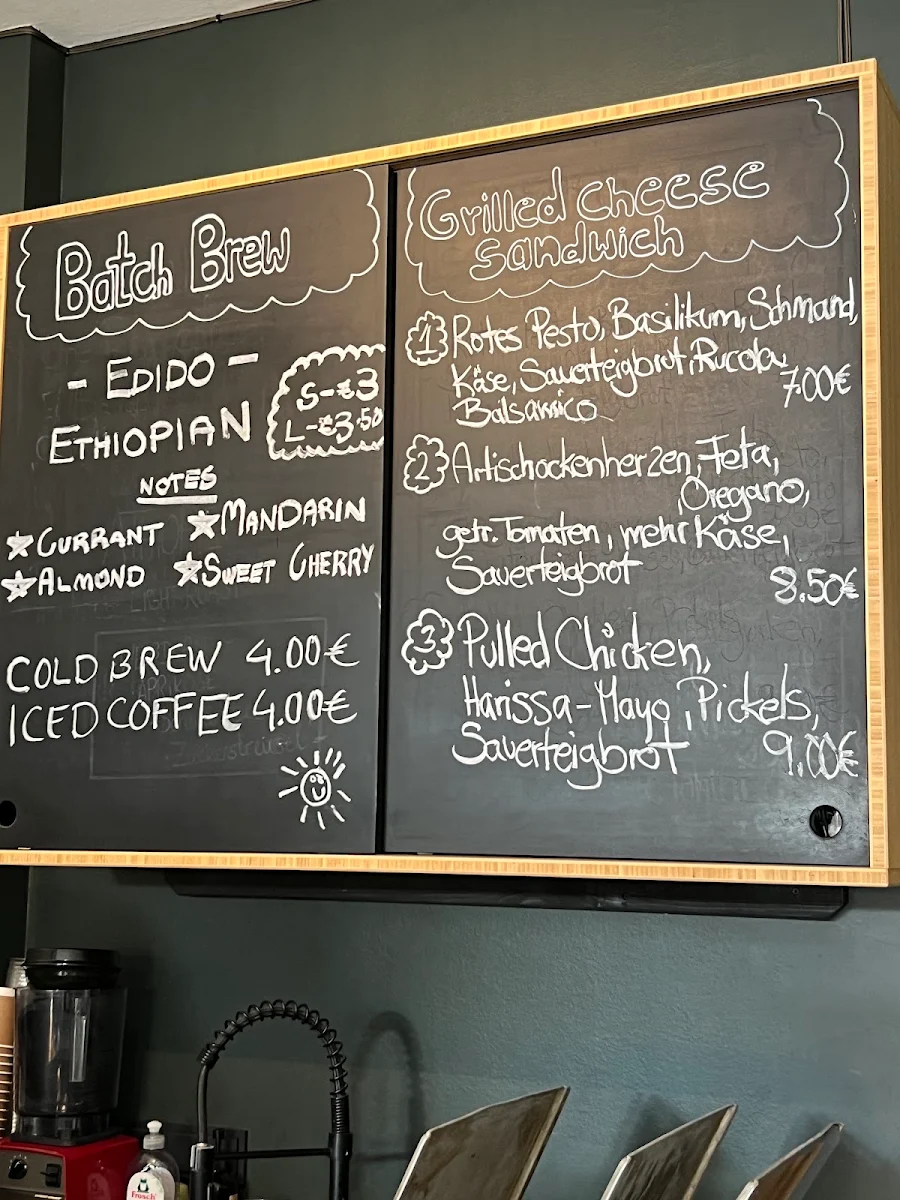 Batch Brew
- EDIDO -
ETHIOPIAN
S-€3
L-€3.50
NOTES
☆CURRANT ☆MANDARIN
☆ALMOND ☆SWEET CHERRY
COLD BREW 4.00€
ICED COFFEE 4.00€
Grilled cheese
sandwich
1 Rotes Pesto, Basilikum, Schmand,
Käse, Sauerteigbrot, Rucola,
7.00€
Balsamico
2 Artischockenherzen, Feta,
Oregano,
getr. Tomaten, mehr Käse,
Sauerteigbrot 8.50€
3 Pulled Chicken,
Harissa-Mayo, Pickels,
Sauerteigbrot 9.00€
Frosch